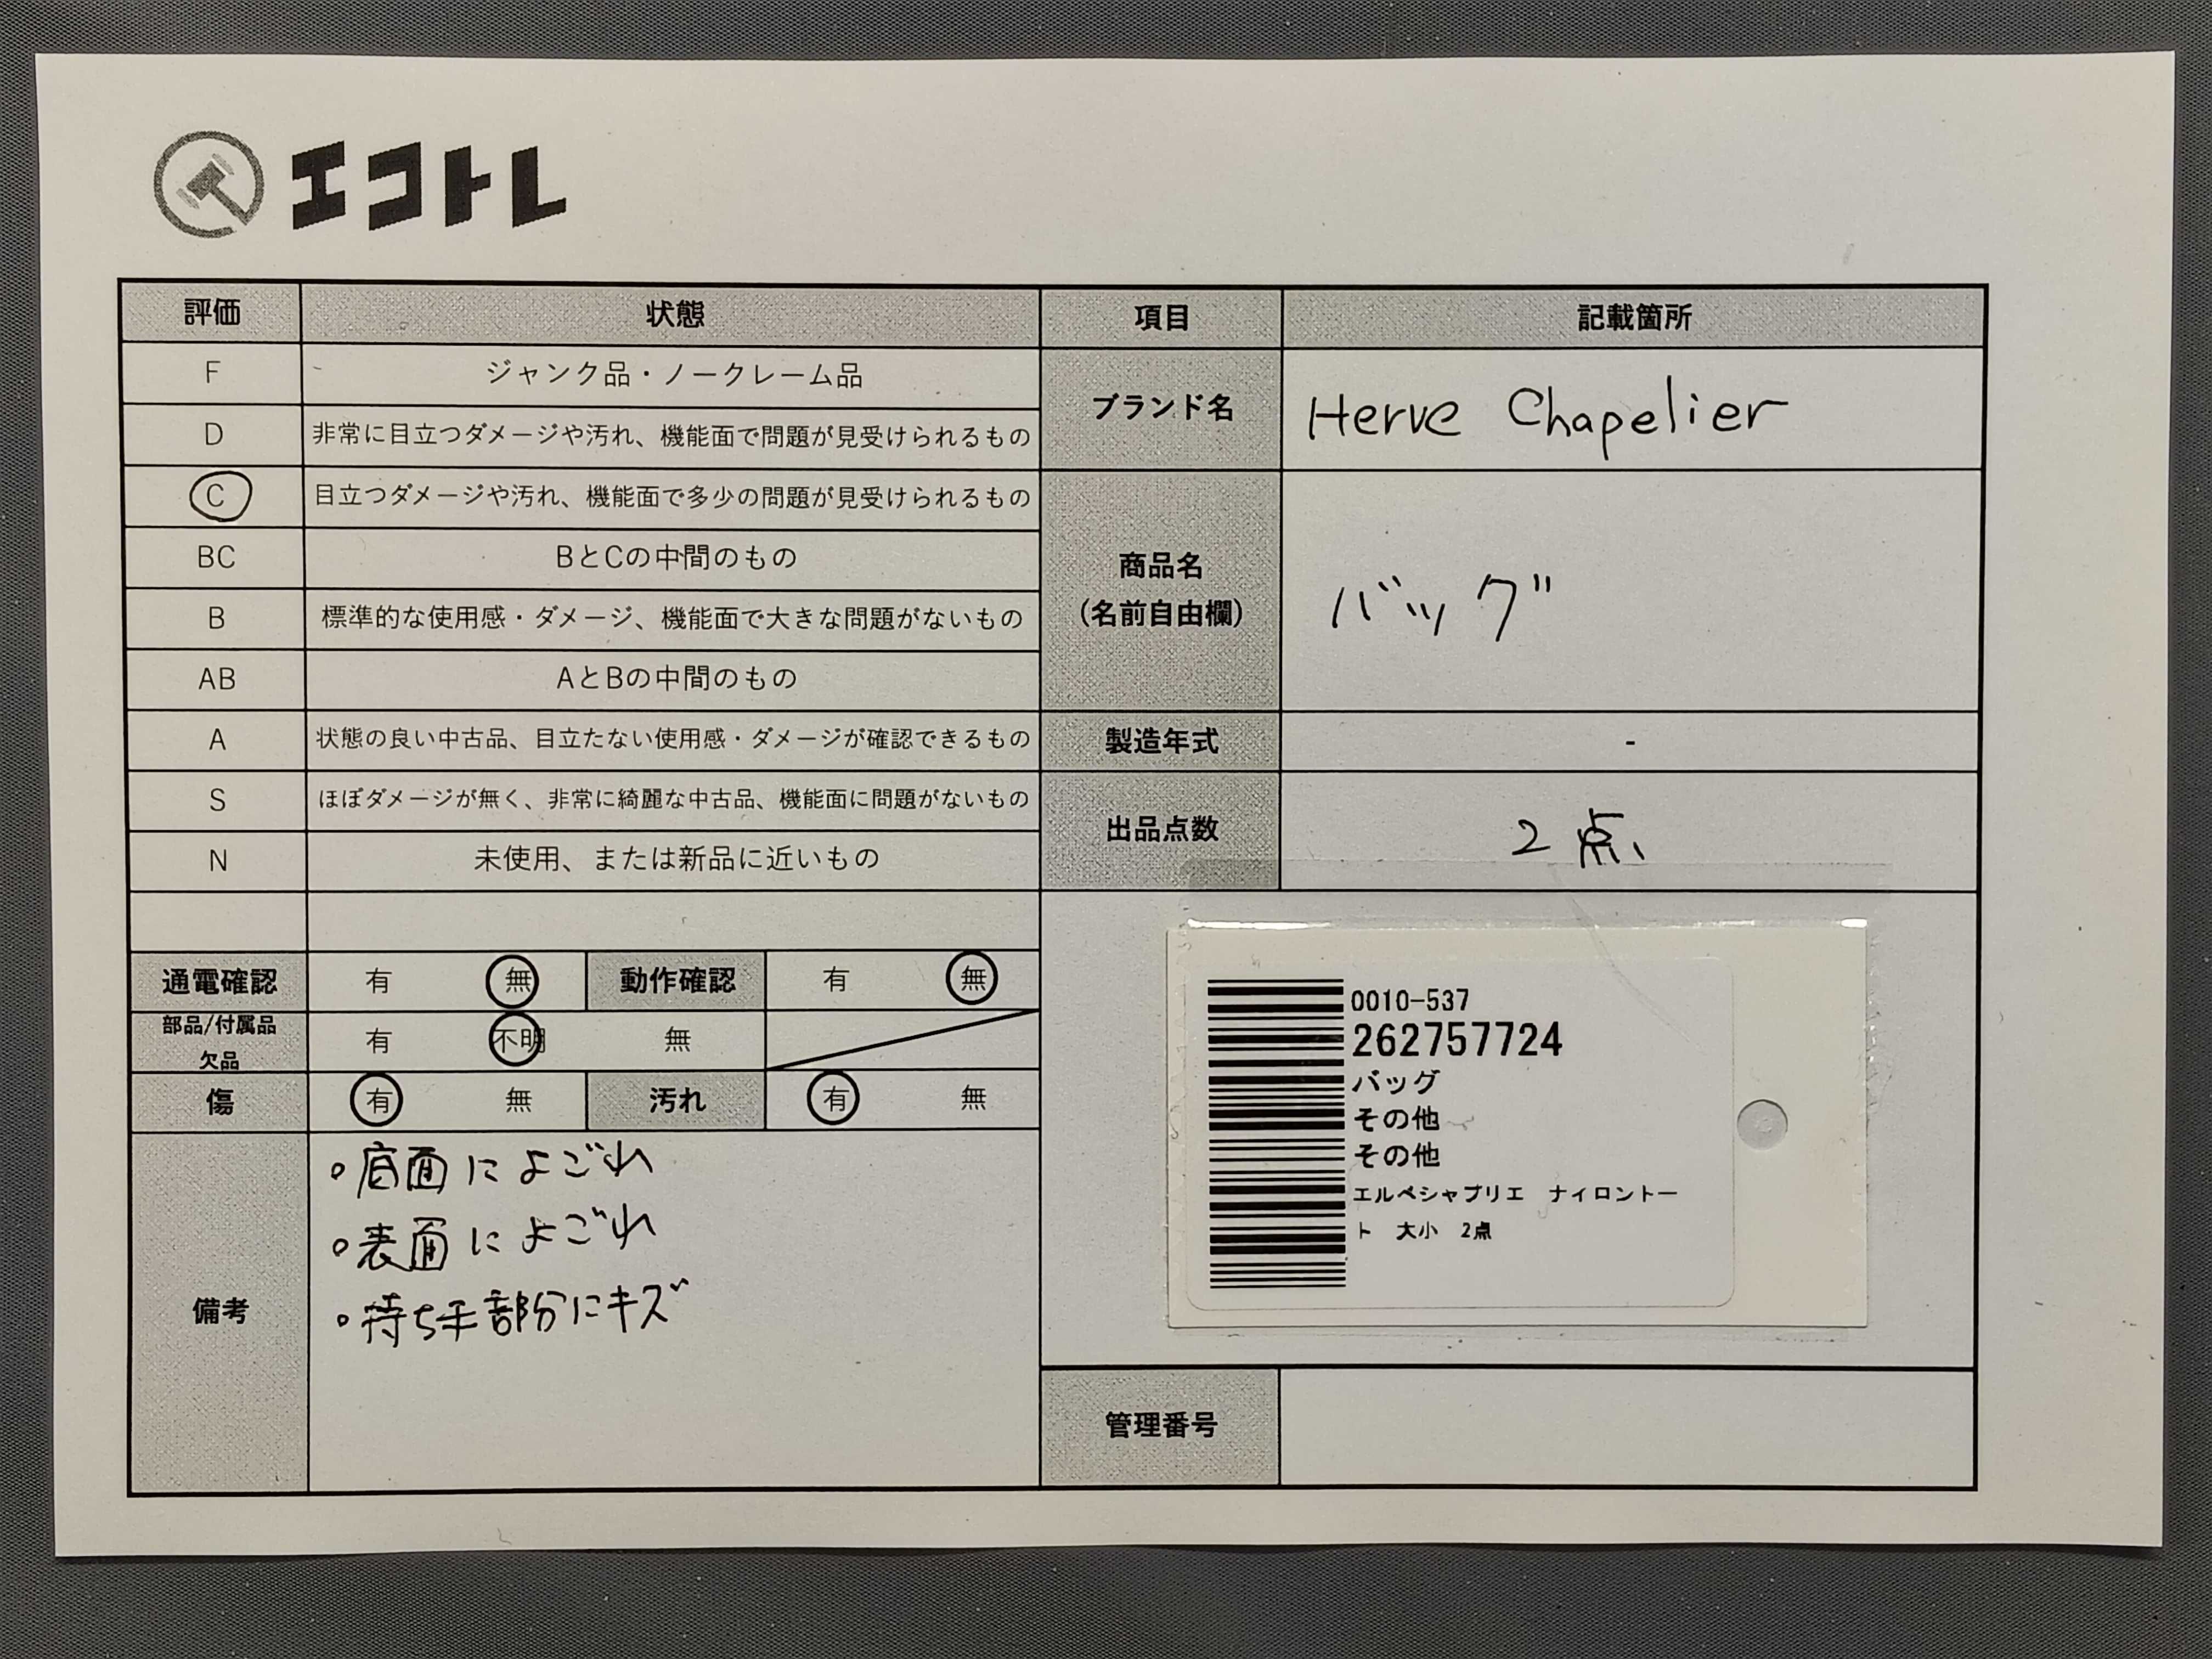 エコトレ
評価 状態 項目 記載箇所
F ジャンク品・ノークレーム品
D 非常に目立つダメージや汚れ、機能面で問題が見受けられるもの
C 目立つダメージや汚れ、機能面で多少の問題が見受けられるもの
BC BとCの中間のもの
B 標準的な使用感・ダメージ、機能面で大きな問題がないもの
AB AとBの中間のもの
A 状態の良い中古品、目立たない使用感・ダメージが確認できるもの
S ほぼダメージが無く、非常に綺麗な中古品、機能面に問題がないもの
N 未使用、または新品に近いもの
ブランド名 Herve Chapelier
商品名
(名前自由欄)
バッグ
製造年式 -
出品点数 2点
通電確認 有 無 動作確認 有 無
部品/付属品
欠品
有 不明 無
傷 有 無 汚れ 有 無
備考
・底面によごれ
・表面によごれ
・持ち手部分にキズ
0010-537
262757724
バッグ
その他
その他
エルベシャプリエ ナイロントー
ト 大小 2点
管理番号